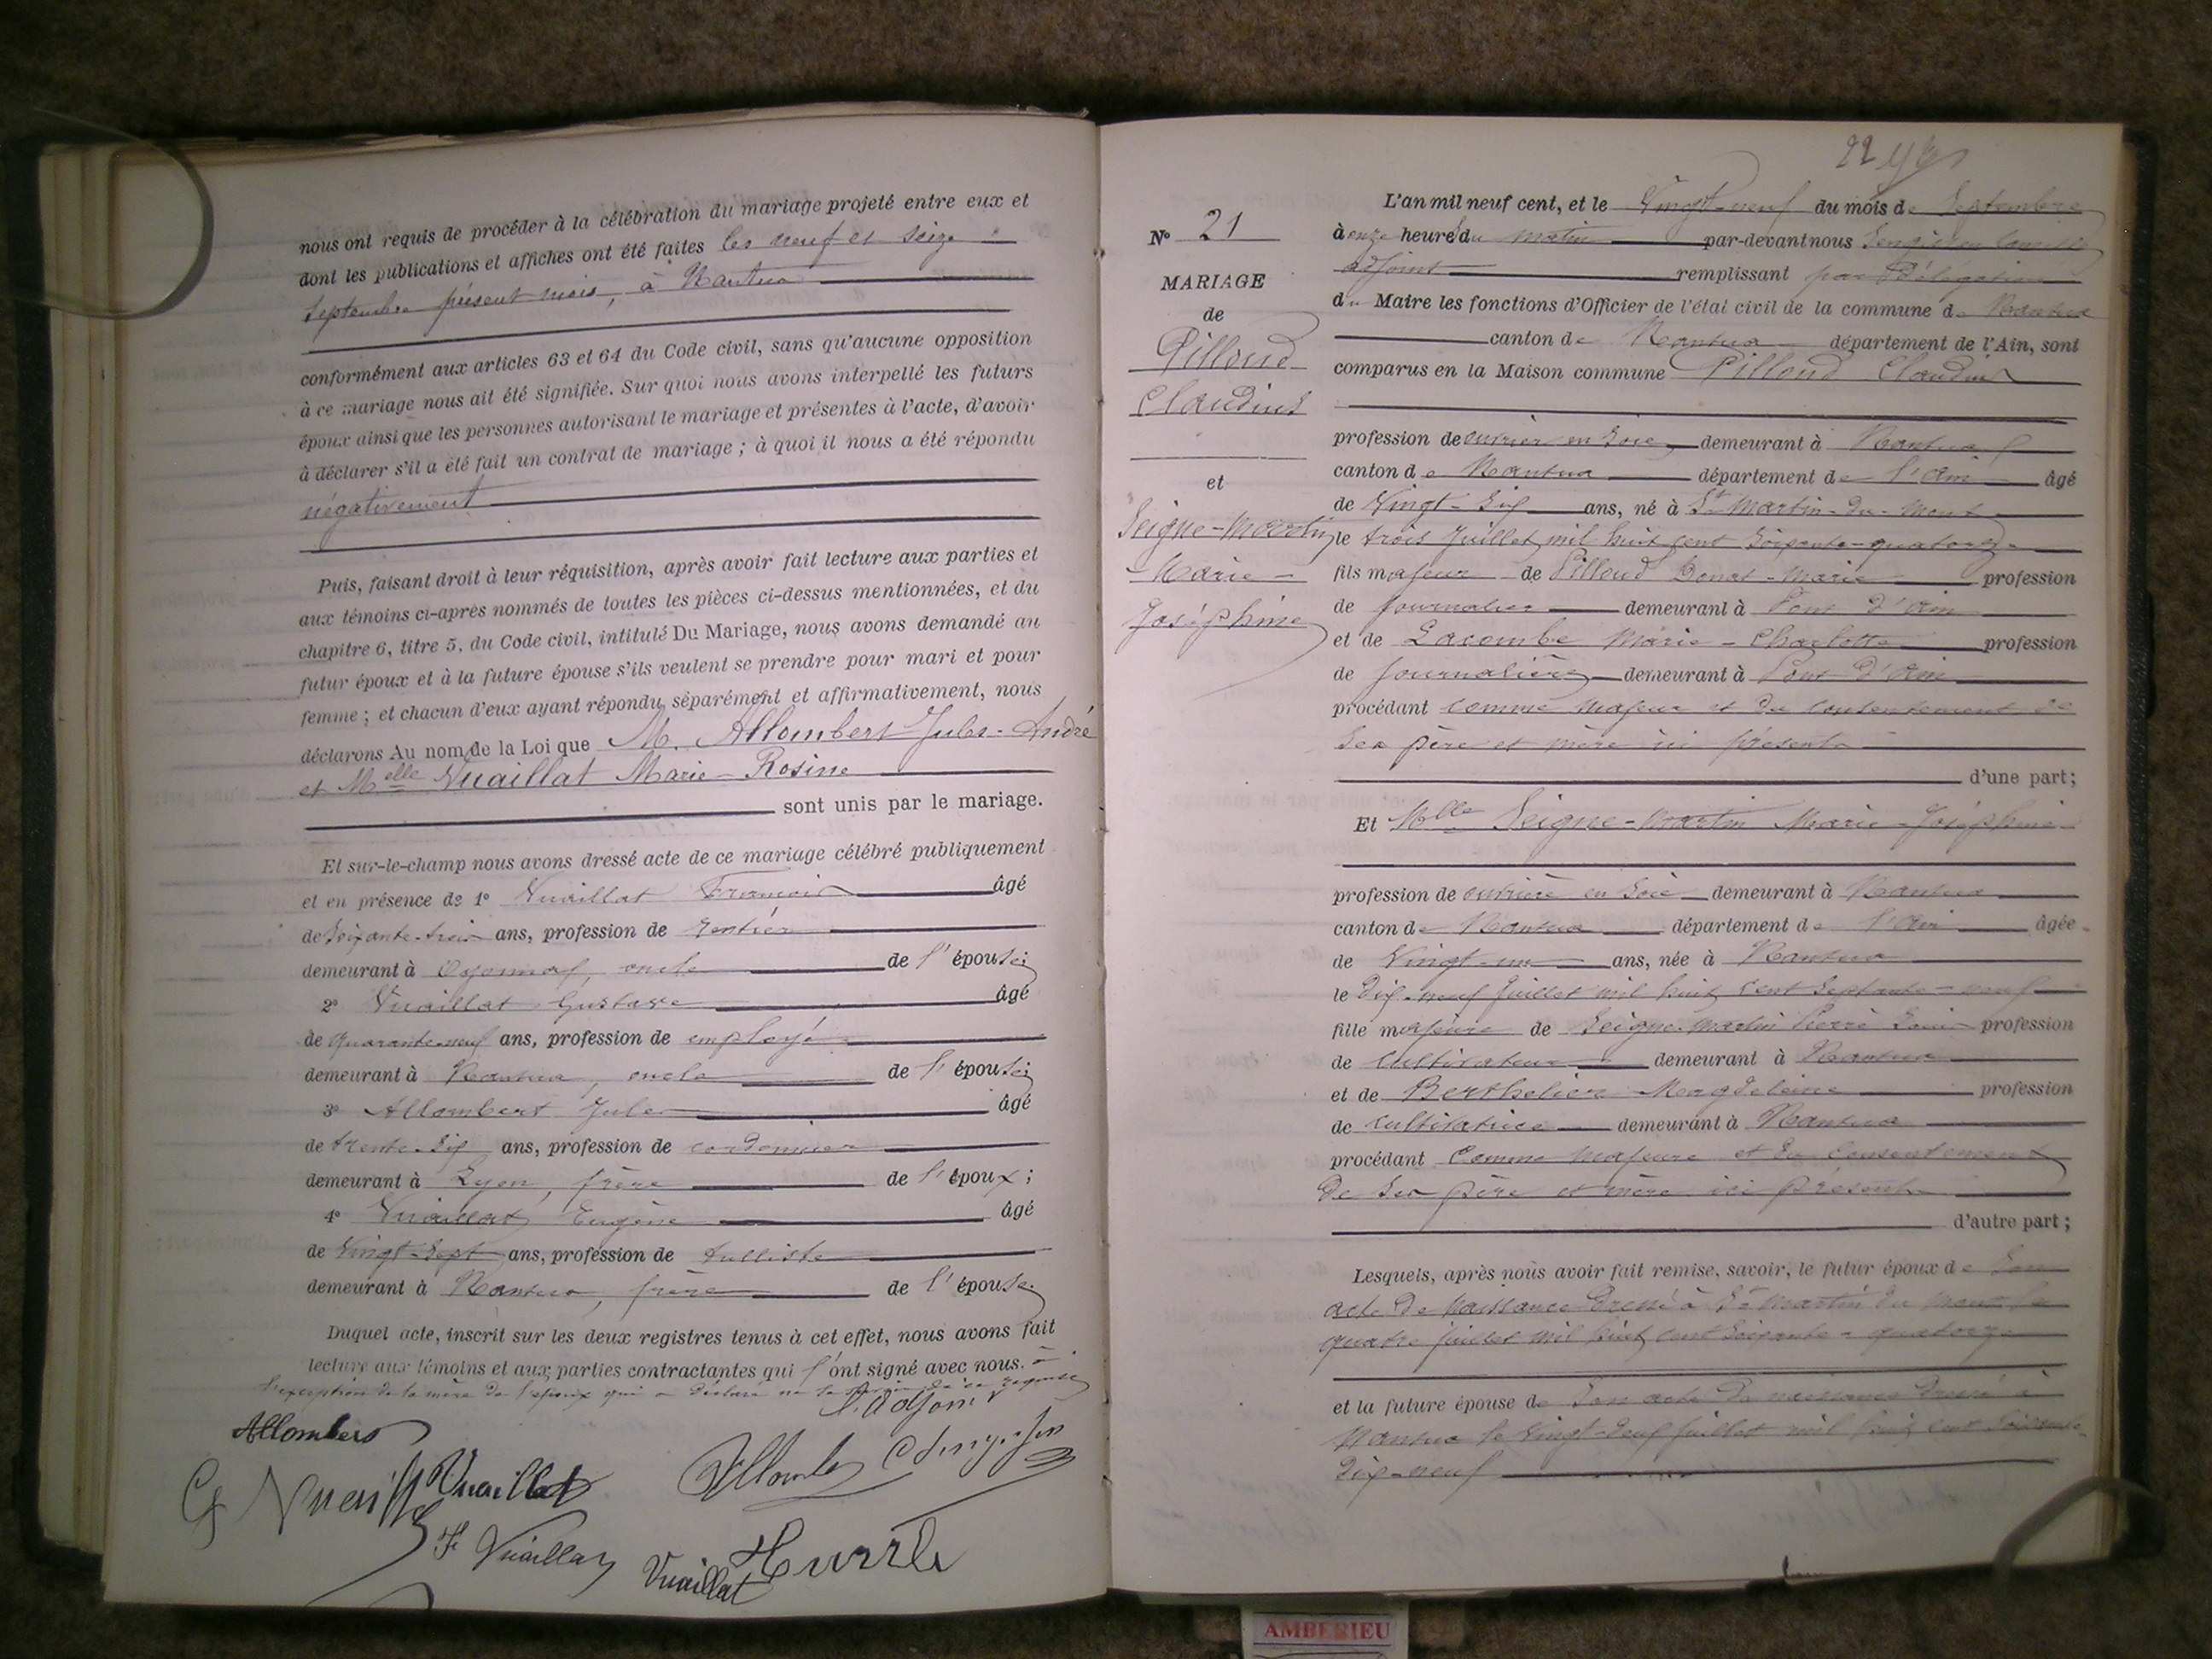 nous ont requis de procéder à la célébration du mariage projeté entre eux et
dont les publications et affiches ont été faites les neuf et seize
Septembre présent mois, à Nantua
conformément aux articles 63 et 64 du Code civil, sans qu'aucune opposition
à ce mariage nous ait été signifiée. Sur quoi nous avons interpellé les futurs
époux ainsi que les personnes autorisant le mariage et présentes à l'acte, d'avoir
à déclarer s'il a été fait un contrat de mariage ; à quoi il nous a été répondu
négativement
Puis, faisant droit à leur réquisition, après avoir fait lecture aux parties et
aux témoins ci-après nommés de toutes les pièces ci-dessus mentionnées, et du
chapitre 6, titre 5, du Code civil, intitulé Du Mariage, nous avons demandé au
futur époux et à la future épouse s'ils veulent se prendre pour mari et pour
femme ; et chacun d'eux ayant répondu séparément et affirmativement, nous
déclarons Au nom de la Loi que M. Allombert Jules-André
et Melle Vuaillat Marie-Rosine
sont unis par le mariage.
Et sur-le-champ nous avons dressé acte de ce mariage célébré publiquement
et en présence de 1° Vuaillat François âgé
de Soixante-trois ans, profession de rentier
demeurant à Oyonnax, oncle de l'épouse;
2° Vuaillat Gustave âgé
de quarante-neuf ans, profession de employé
demeurant à Nantua, oncle de l'épouse;
3° Allombert Jules âgé
de trente-six ans, profession de cordonnier
demeurant à Lyon, frère de l'époux ;
4° Vuaillat Eugène âgé
de Vingt-Sept ans, profession de tulliste
demeurant à Nantua, frère de l'épouse.
Duquel acte, inscrit sur les deux registres tenus à cet effet, nous avons fait
lecture aux témoins et aux parties contractantes qui l'ont signé avec nous. à
l'exception de la mère de l'époux qui a déclaré ne le savoir de ce requise
L'adjoint
Allombert
G Vuaillat Vuaillat Allombert
F Vuaillat
Vuaillat
22
N° 21
MARIAGE
de
Pilloud
Claudius
et
Seigne-Martin
Marie-
Joséphine
L'an mil neuf cent, et le Vingt-neuf du mois de Septembre
à onze heure du matin par-devant nous
adjoint remplissant par Délégation
du Maire les fonctions d'Officier de l'état civil de la commune de Nantua
canton de Nantua département de l'Ain, sont
comparus en la Maison commune Pilloud Claudius
profession de ouvrier en Soie demeurant à Nantua
canton de Nantua département de l'Ain âgé
de Vingt-Six ans, né à St Martin-du-Mont
le trois Juillet mil huit cent Soixante-quatorze
fils majeur de Pilloud Donat-Marie profession
de journalier demeurant à Pont d'Ain
et de Lacombe Marie-Charlotte profession
de journalière demeurant à Pont-d'Ain
procédant comme majeur et du consentement de
Ses père et mère ici présents
d'une part;
Et Melle Seigne-Martin Marie-Joséphine
profession de ouvrière en Soie demeurant à Nantua
canton de Nantua département de l'Ain âgée
de Vingt-un ans, née à Nantua
le Dix-neuf Juillet mil huit cent Septante-neuf
fille majeure de Seigne-Martin Pierre Louis profession
de Cultivateur demeurant à Nantua
et de Berthelier Magdeleine profession
de cultivatrice demeurant à Nantua
procédant Comme Majeure et du Consentement
de Ses père et mère ici présents
d'autre part ;
Lesquels, après nous avoir fait remise, savoir, le futur époux de Son
acte de naissance dressé à St Martin du Mont le
quatre juillet mil huit cent Soixante-quatorze
et la future épouse de Son acte de naissance dressé à
Nantua le Vingt-deux juillet mil huit cent Soixante
Dix-neuf
AMBERIEU